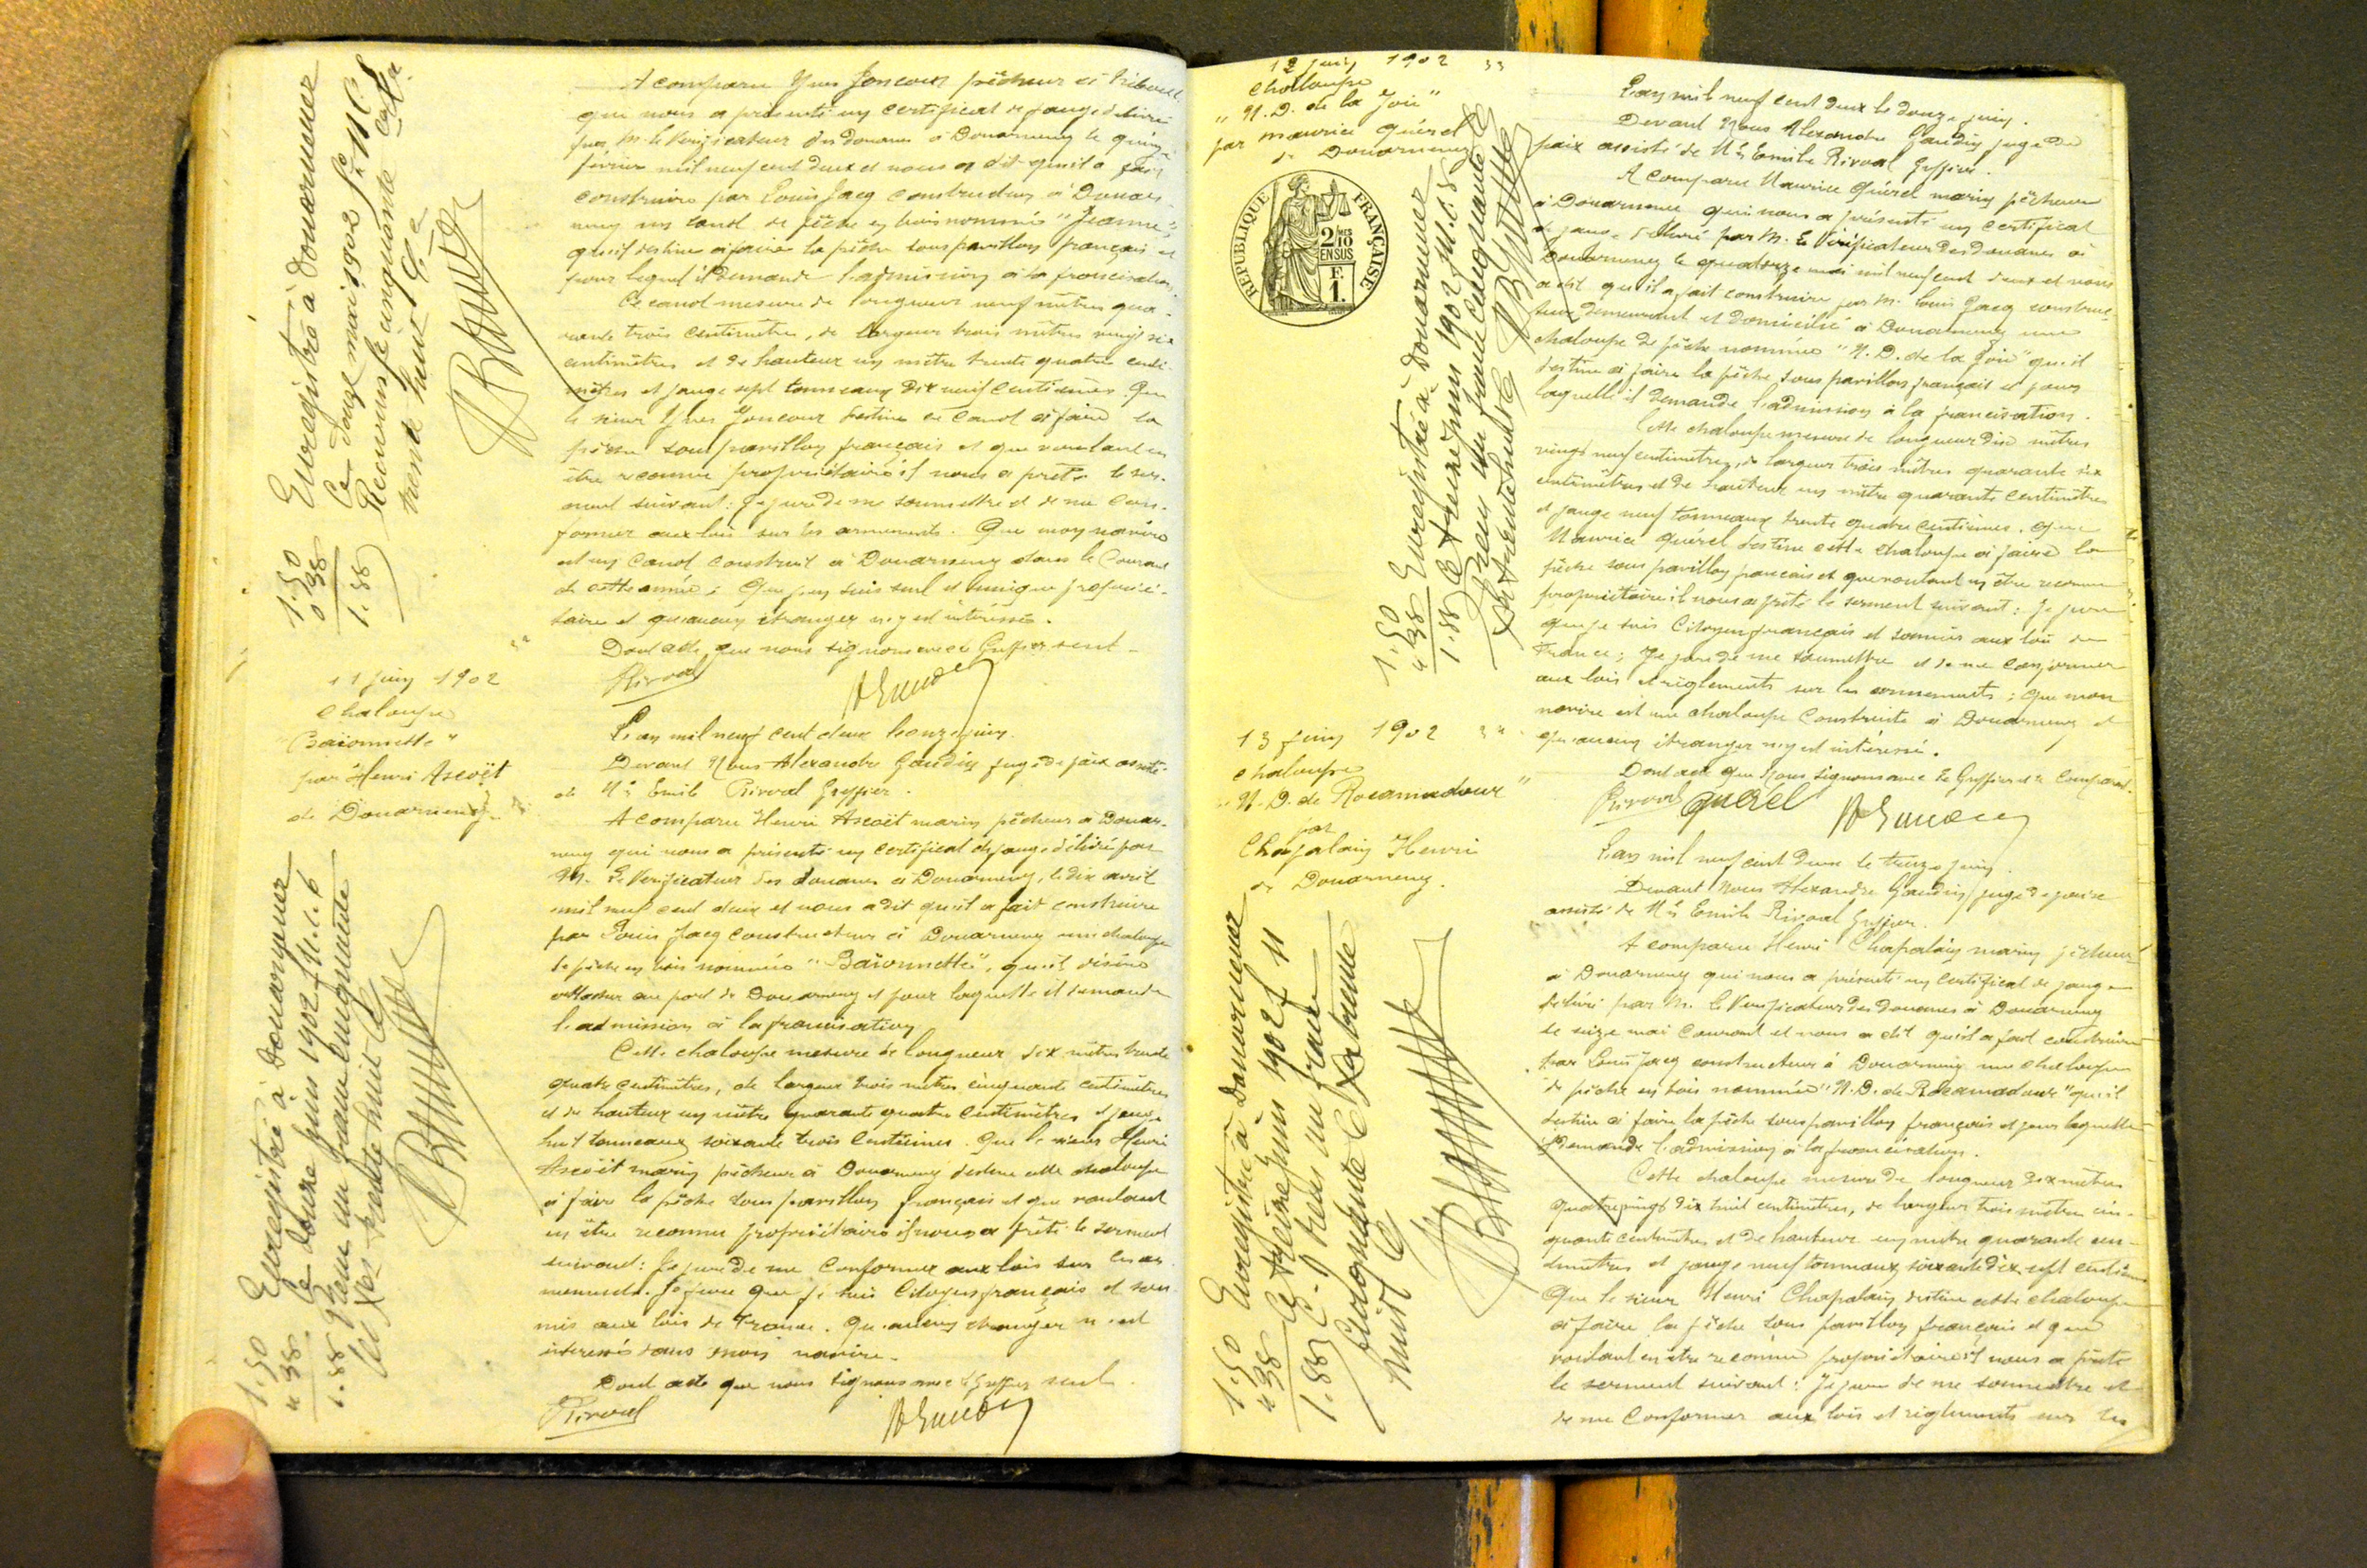 A comparu Yves Joncour pêcheur à Tréboul
qui nous a présenté un certificat de jauge délivré
par M. le Vérificateur des douanes à Douarnenez le quinze
février mil neuf cent deux et nous a dit qu'il a fait
construire par Louis Jacq constructeur à Douar-
nenez un canot de pêche en bois nommé "Jeanne"
qu'il destine à faire la pêche sous pavillon français et
pour lequel il demande l'admission à la francisation.
Ce canot mesure de longueur neuf mètres qua-
rante trois centimètres, de largeur trois mètres vingt six
centimètres et de hauteur un mètre trente quatre centi-
mètres et jauge sept tonneaux dix neuf centièmes. Que
le sieur Yves Joncour destine ce canot à faire la
pêche sous pavillon français et que voulant en
être reconnu propriétaire il nous a prêté le ser-
ment suivant: Je jure de me soumettre et de me con-
former aux lois sur les armements. Que mon navire
est un canot construit à Douarnenez dans le courant
de cette année; Que j'en suis seul et unique proprié-
taire et qu'aucun étranger n'y est intéressé.
Dont acte que nous signons avec le Greffier seul
Rivoal AGaudin
Enregistré à Douarnenez
Ce douze mai 1902 f° 11 C
Reçu un f. cinquante
trente huit C.
1.50
0 38
1.88
11 juin 1902
chaloupe
"Baïonnette"
par Henri Ascoët
de Douarnenez
L'an mil neuf cent deux le onze juin.
Devant Nous Alexandre Gaudin juge de paix assisté
de Me Emile Rivoal Greffier.
A comparu Henri Ascoët marin pêcheur à Douar-
nenez qui nous a présenté un certificat de jauge délivré par
M. le Vérificateur des douanes à Douarnenez, le dix avril
mil neuf cent deux et nous a dit qu'il a fait construire
par Louis Jacq constructeur à Douarnenez une chaloupe
de pêche en bois nommée "Baïonnette", qu'il désire
attacher au port de Douarnenez et pour laquelle il demande
l'admission à la francisation
Cette chaloupe mesure de longueur dix mètres trente
quatre centimètres, de largeur trois mètres cinquante centimètres
et de hauteur un mètre quarante quatre centimètres et jauge
huit tonneaux soixante trois centièmes. Que le sieur Henri
Ascoët marin pêcheur à Douarnenez destine cette chaloupe
à faire la pêche sous pavillon français et que voulant
en être reconnu propriétaire il nous a prêté le serment
suivant: Je jure de me conformer aux lois sur les ar-
mements. Je jure que je suis Citoyen français et sou-
mis aux lois de France. Qu'aucun étranger n'est
intéressé dans mon navire.
Dont acte que nous signons avec le Greffier seul.
Rivoal AGaudin
Enregistré à Douarnenez
le douze juin 1902 f° 11. c. 6
Reçu un franc cinquante
trente huit C
1.50
" 38
1.88
12 juin 1902
chaloupe
"N. D. de la Joie"
par Maurice Quérel
de Douarnenez
RÉPUBLIQUE FRANÇAISE
2/10 EN SUS
F. 1.
L'an mil neuf cent deux le douze juin.
Devant Nous Alexandre Gaudin juge de
paix assisté de Me Emile Rivoal Greffier.
A comparu Maurice Quérel marin pêcheur
à Douarnenez qui nous a présenté un certificat
de jauge délivré par M. le Vérificateur des douanes à
Douarnenez le quatorze mai mil neuf cent deux et nous
a dit qu'il a fait construire par M. Louis Jacq construc-
teur demeurant et domicilié à Douarnenez une
chaloupe de pêche nommée "N. D. de la Joie" qu'il
destine à faire la pêche sous pavillon français et pour
laquelle il demande l'admission à la francisation.
Cette chaloupe mesure de longueur dix mètres
vingt neuf centimètres, de largeur trois mètres quarante six
centimètres et de hauteur un mètre quarante centimètres
et jauge neuf tonneaux trente quatre centièmes. Que
Maurice Quérel destine cette chaloupe à faire la
pêche sous pavillon français et que voulant en être reconnu
propriétaire il nous a prêté le serment suivant: Je jure
que je suis Citoyen français et soumis aux lois de
France; Je jure de me soumettre et de me conformer
aux lois et règlements sur les armements; Que mon
navire est une chaloupe construite à Douarnenez et
qu'aucun étranger n'y est intéressé.
Dont acte que Nous signons avec le Greffier et le comparant.
Rivoal Quérel AGaudin
Enregistré à Douarnenez
Ce treize juin 1902
Reçu un franc cinquante C
trente huit C
1.50
" 38
1.88
13 juin 1902
chaloupe
"N. D. de Rocamadour"
par
Chapalain Henri
de Douarnenez.
L'an mil neuf cent deux le treize juin.
Devant Nous Alexandre Gaudin juge de paix
assisté de Me Emile Rivoal Greffier.
A comparu Henri Chapalain marin pêcheur
à Douarnenez qui nous a présenté un certificat de jauge
délivré par M. le Vérificateur des douanes à Douarnenez
le seize mai courant et nous a dit qu'il a fait construire
par Louis Jacq constructeur à Douarnenez une chaloupe
de pêche en bois nommée "N. D. de Rocamadour" qu'il
destine à faire la pêche sous pavillon français et pour laquelle
il demande l'admission à la francisation.
Cette chaloupe mesure de longueur dix mètres
quatre vingt dix huit centimètres, de largeur trois mètres cin-
quante centimètres et de hauteur un mètre quarante cen-
timètres et jauge neuf tonneaux soixante dix sept centièmes
Que le sieur Henri Chapalain destine cette chaloupe
à faire la pêche sous pavillon français et que
voulant en être reconnu propriétaire il nous a prêté
le serment suivant: Je jure de me soumettre et
de me conformer aux lois et règlements sur les
Enregistré à Douarnenez
Ce treize juin 1902 f 11
Reçu un franc
cinquante C trente
huit C
1.50
" 38
1.88